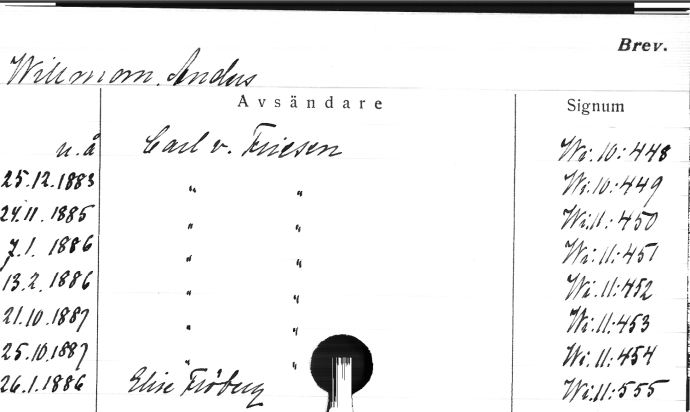 Brev.
Willmom, Anders
Avsändare Signum
u.å Carl v. Friesen Wi.10:448
25.12.1883 " " Wi.10:449
24.11.1885 " " Wi.11:450
7.1.1886 " " Wi.11:451
13.2.1886 " " Wi.11:452
21.10.1887 " " Wi.11:453
25.10.1887 " " Wi.11:454
26.1.1886 Elise Fröberg Wi.11:555